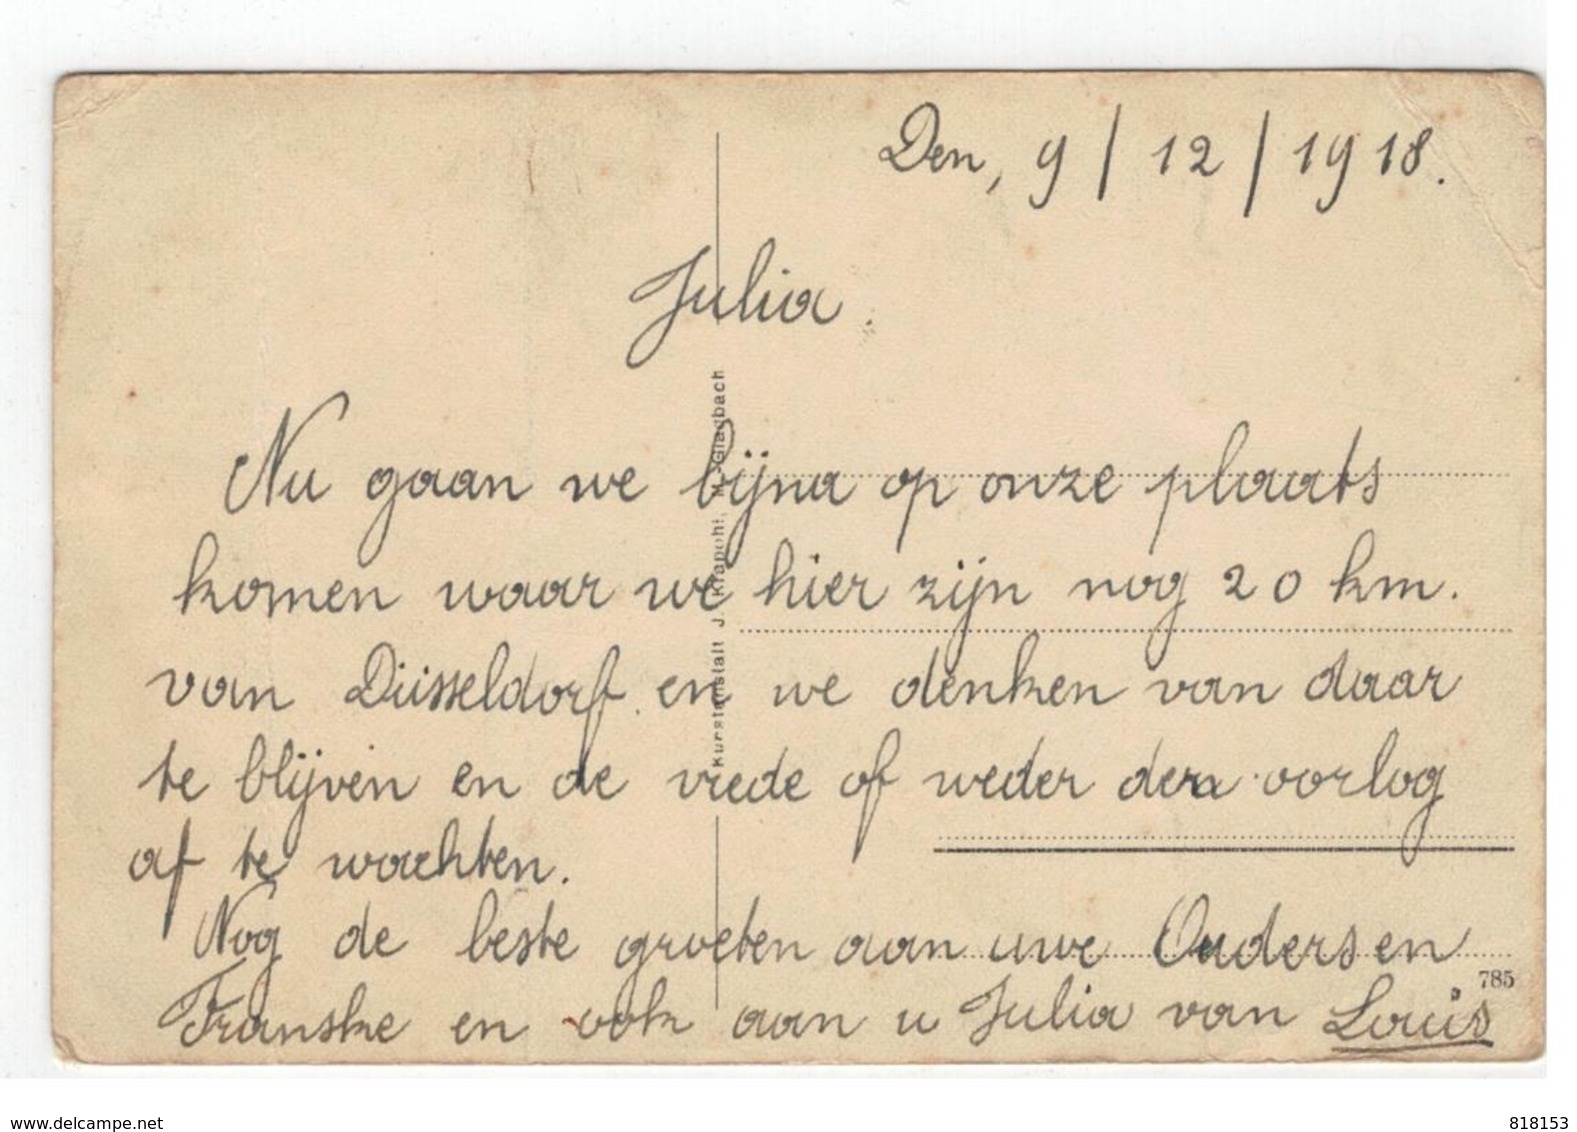 Den, 9 / 12 / 1918.
Julia.
Nu gaan we bijna op onze plaats
komen waar we hier zijn nog 20 km.
van Düsseldorf en we denken van daar
te blijven en de vrede of weder den oorlog
af te wachten.
Nog de beste groeten aan uwe Ouders en
Franske en ook aan u Julia van Louis
Kunstanstalt J. Krapohl, M.-Gladbach
785
delcampe.net
818153